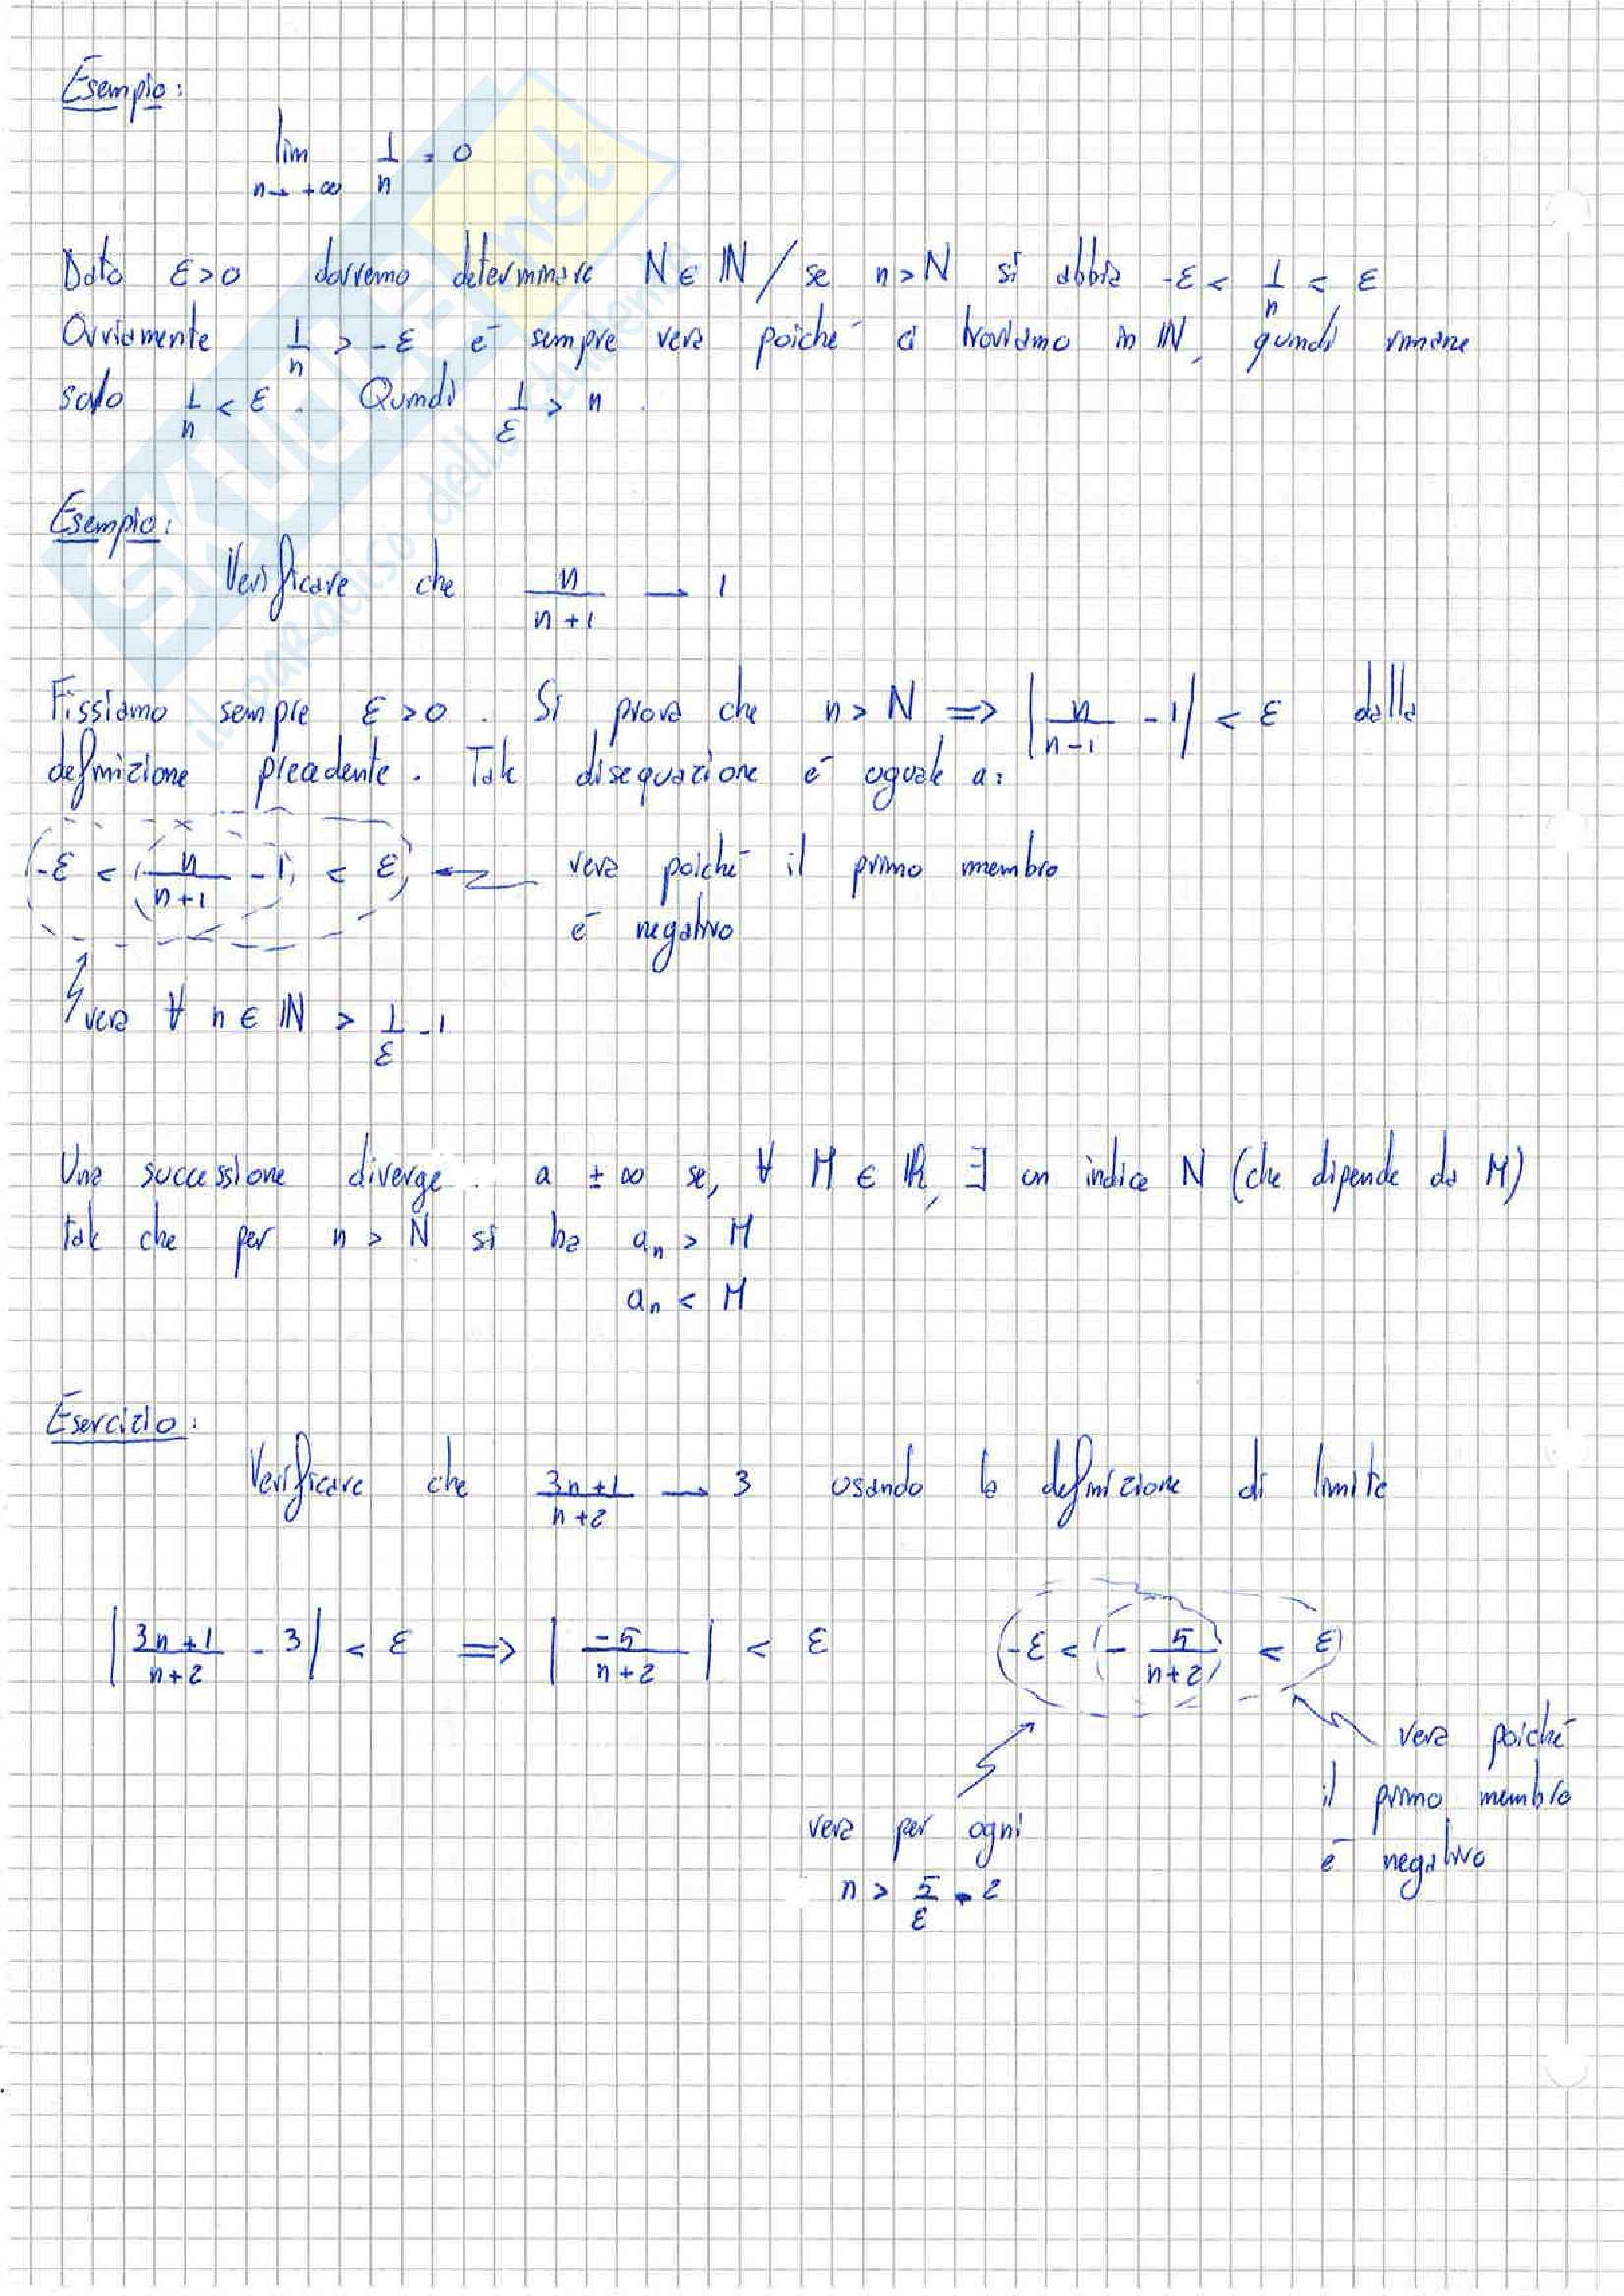 Esempio:
lim 1/n = 0
n→ +∞
Dato ε>0 dovremo determinare N∈ℕ / se n>N si abbia -ε < 1/n < ε
Ovviamente 1/n > -ε é sempre vera poiché ci troviamo in ℕ, quindi rimane
solo 1/n < ε. Quindi 1/ε > n.
Esempio:
Verificare che n/(n+1) → 1
Fissiamo sempre ε>0. Si prova che n>N => |n/(n-1) -1| < ε dalla
definizione precedente. Tale disequazione é uguale a:
-ε < n/(n+1) -1 < ε vera poiché il primo membro
é negativo
vera ∀ n∈ℕ > 1/ε -1
Una successione diverge a ±∞ se, ∀ M∈ℝ, ∃ un indice N (che dipende da M)
tale che per n>N si ha an > M
an < M
Esercizio:
Verificare che (3n+1)/(n+2) → 3 usando la definizione di limite
|(3n+1)/(n+2) - 3| < ε => |-5/(n+2)| < ε -ε < - 5/(n+2) < ε
vera poiché
il primo membro
é negativo
vera per ogni
n > 5/ε - 2
SKUOLA.net
il paradiso dello studente